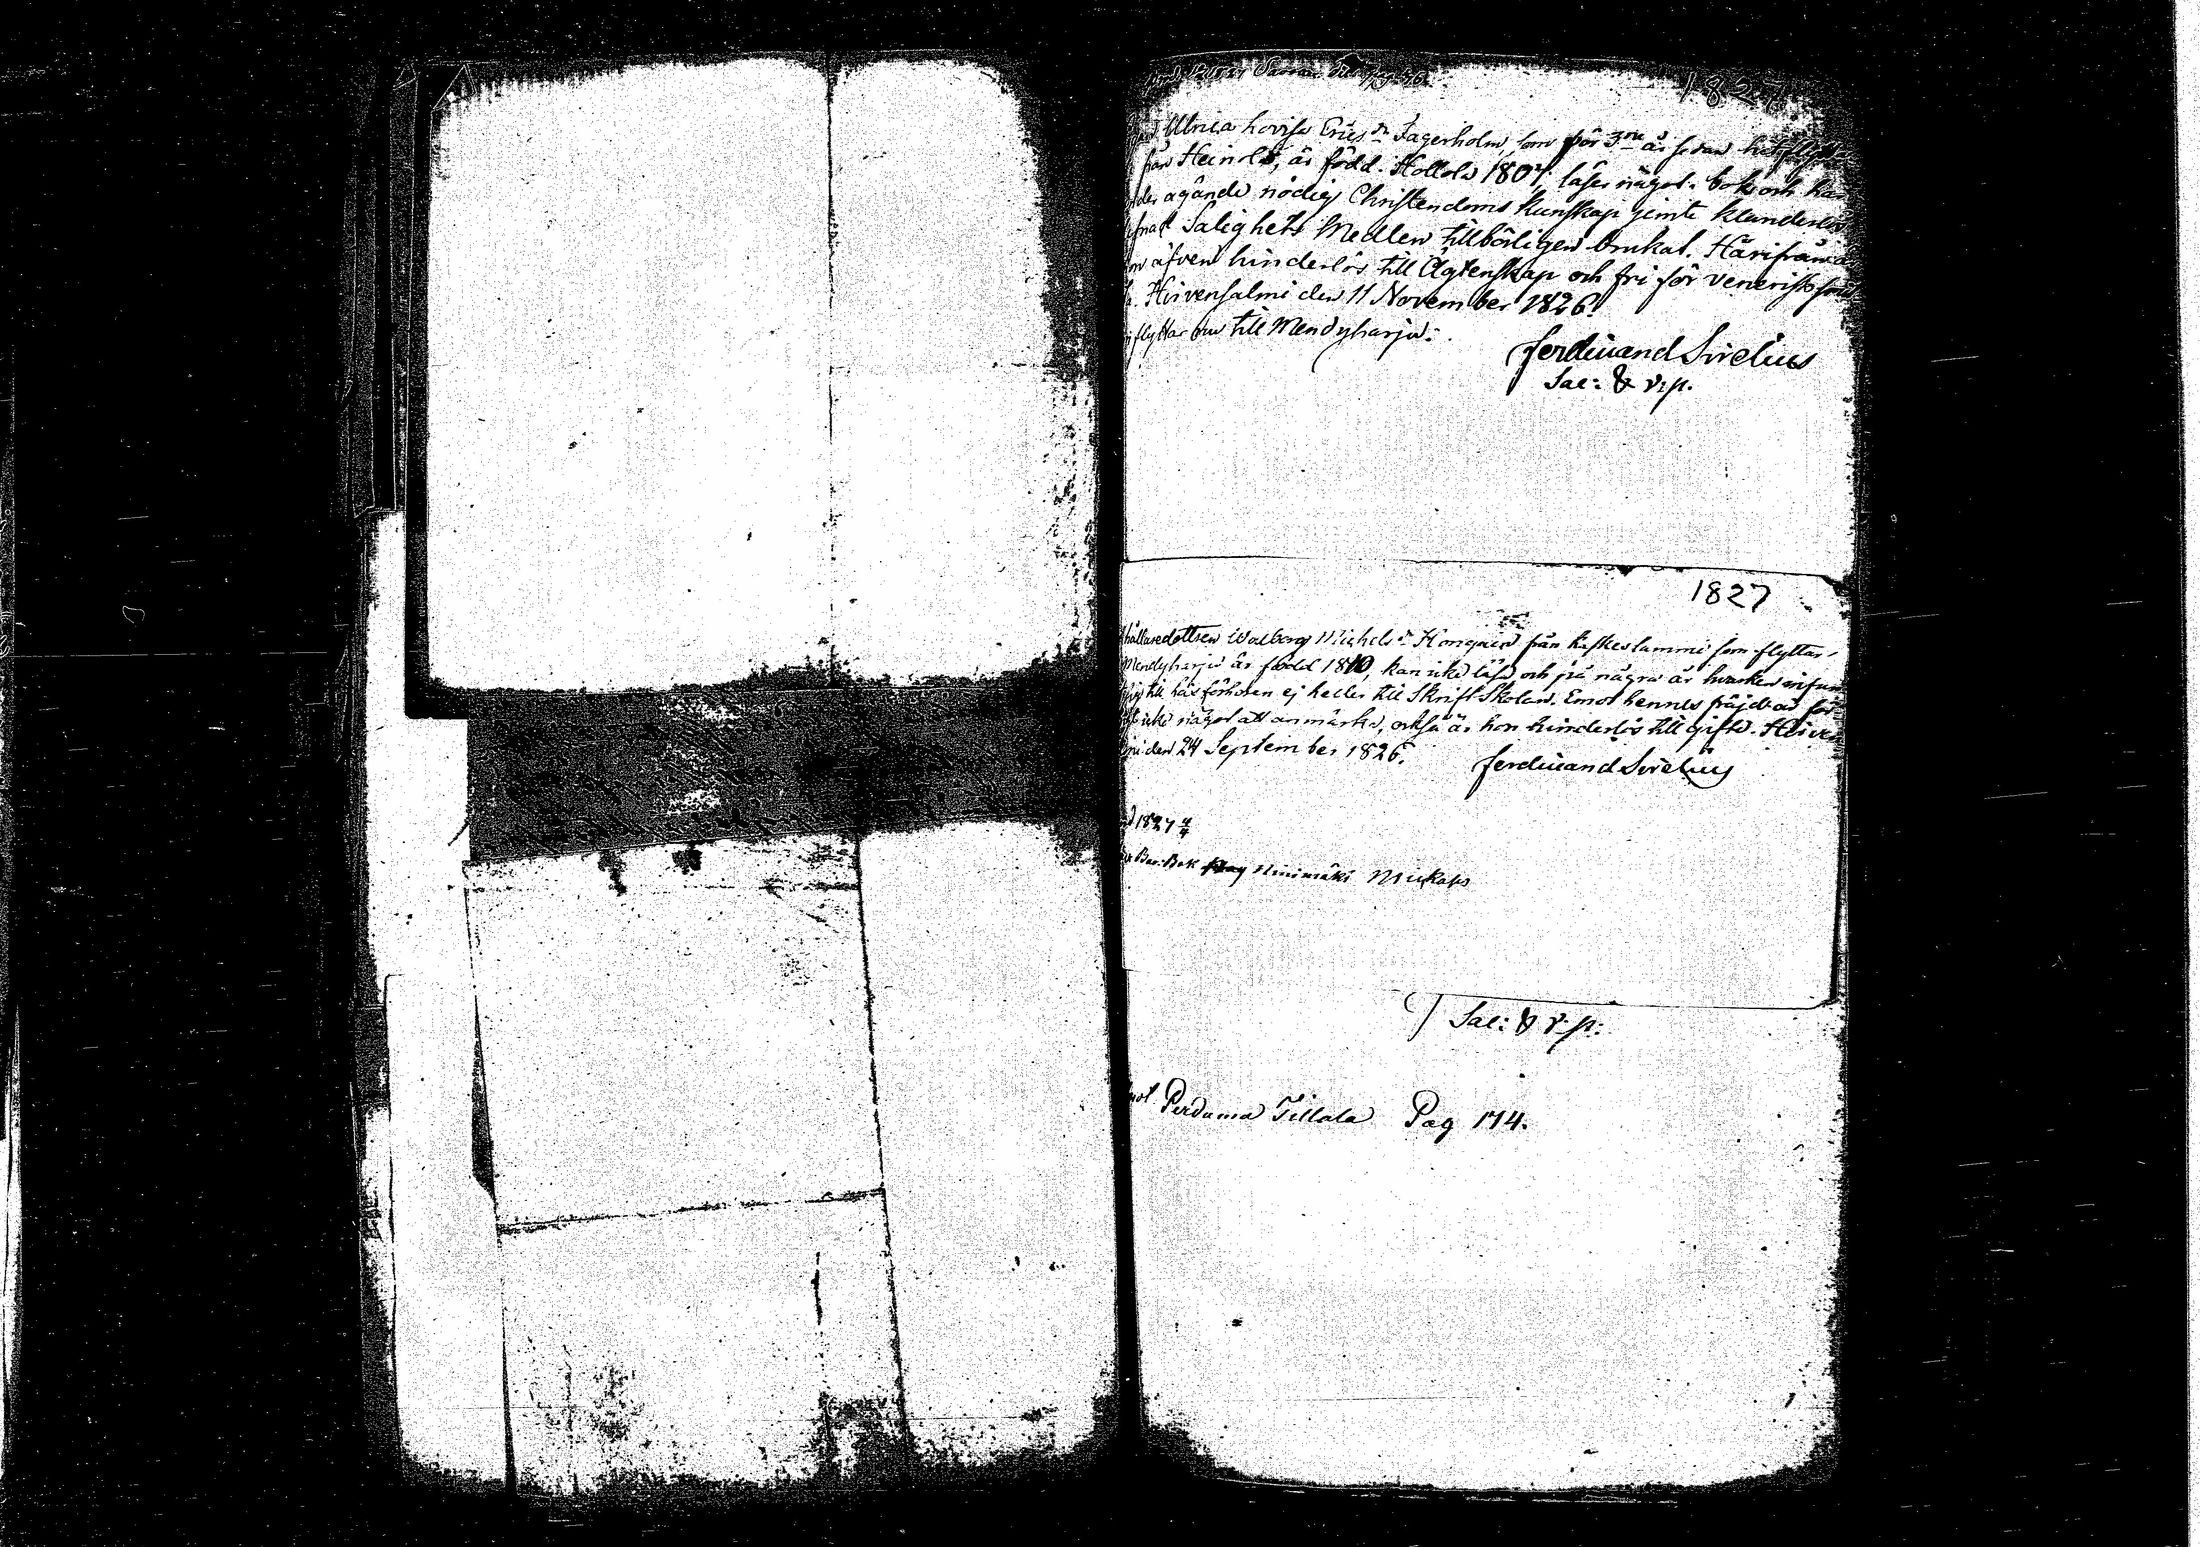 1827
Ulrica Lovisa Erics dr Fagerholm, som för 3ne år sedan
från Heinola, är född i Hollola 1807, läser något i bok och har
ägande nödig Christendoms kunskap jemte klanderlös
Salighets Medlen tillbörligen brukat. Härifrån är
äfven hinderlös till Ägtenskap och fri för venerisk
Hirvensalmi den 11 November 1826.
flyttar nu till Mendyharju.
Ferdinand Sirelius
Sac: & v.p.
1827
hållaredottren Walborg Michels dr Hongain från Kiskeslammi som flyttar
Mendyharju är född 1810, kan icke läsa och på några år hvarken
till läsförhören ej heller till Skrift Skolan. Emot hennes fräjd
icke något att anmärka, också är hon hinderlös till gifte. Hirven
den 24 September 1826.
Ferdinand Sirelius
1827 4/4
Bar: Bok Niinimäki
Sac: & v.p:
Perduma Tillola Pag 174.